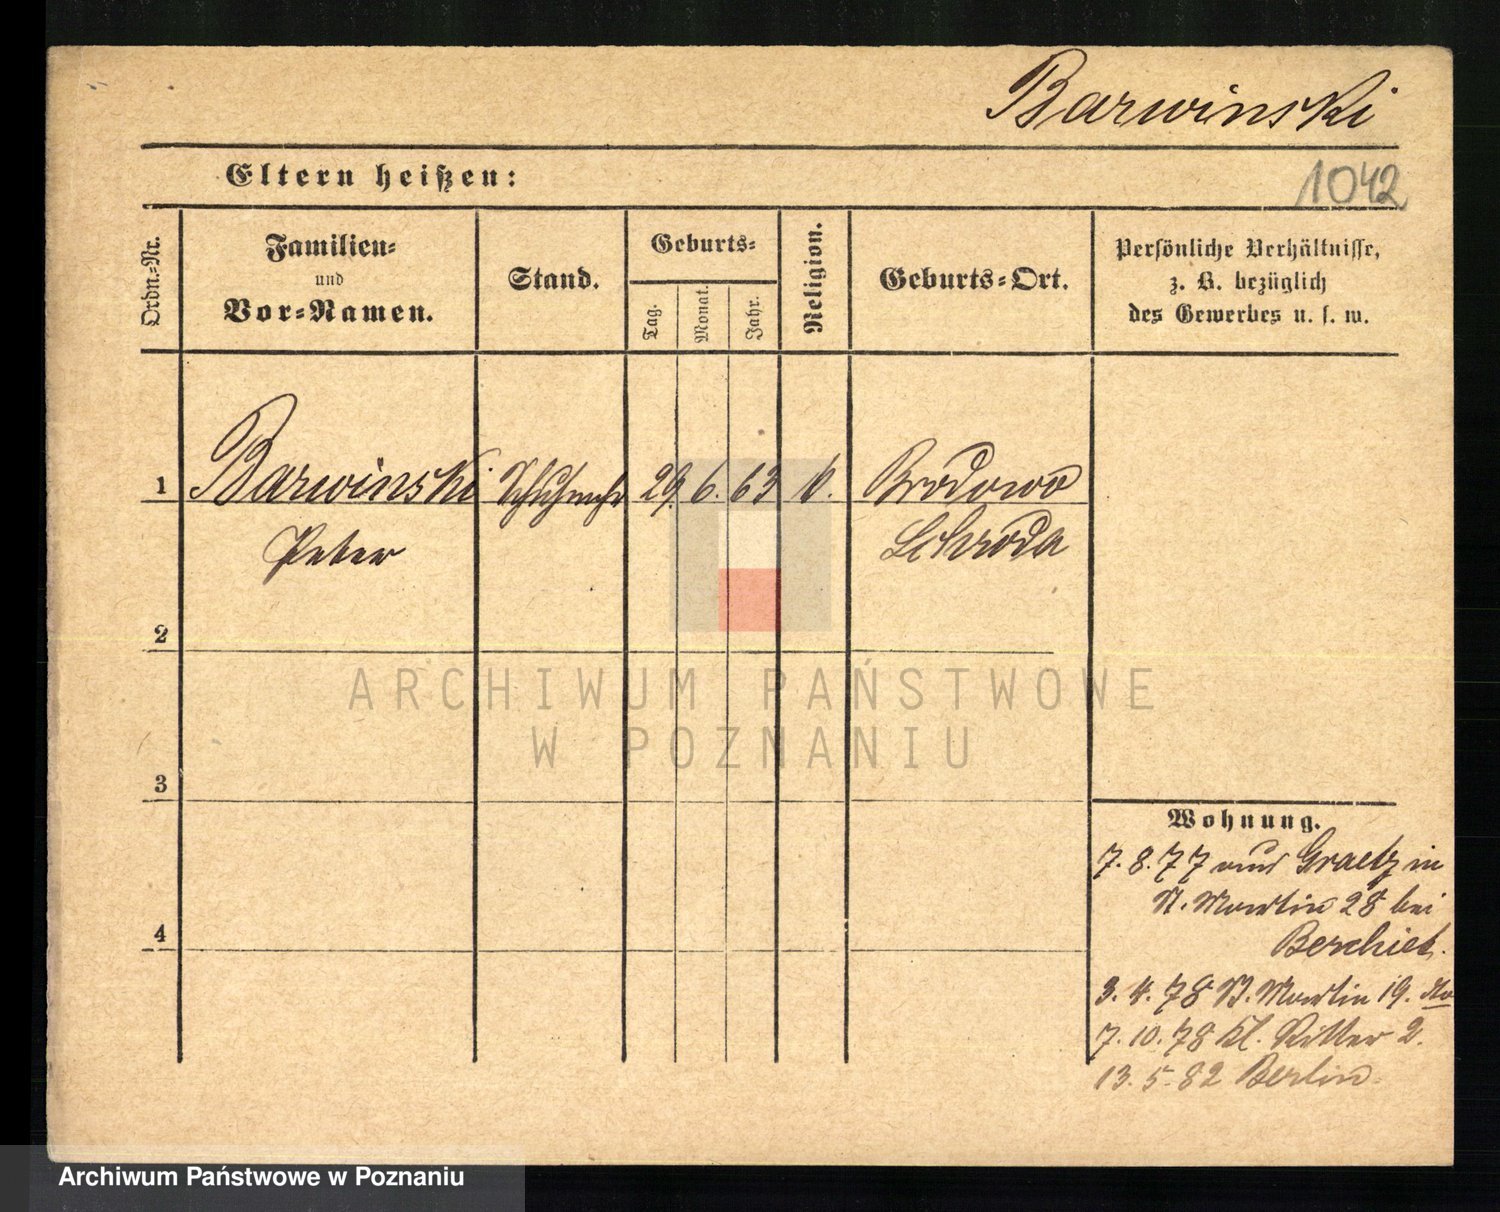 Barwinski
Eltern heißen:
1042
Ordn.-Nr.
Familien-
und
Vor-Namen.
Stand.
Geburts-
Tag.
Monat.
Jahr.
Religion.
Geburts-Ort.
Persönliche Verhältnisse,
z. B. bezüglich
des Gewerbes u. s. w.
1
Barwinski Schuhmchr 29. 6. 63 k. Brodowo
Peter Schroda
2
3
4
Wohnung.
7. 8. 77 aus Graetz in
St. Martin 28 bei
3. 4. 78 St. Martin 19. do
7. 10. 78 Kl. Ritter 2.
13. 5. 82 Berlin.
ARCHIWUM PAŃSTWOWE
W POZNANIU
Archiwum Państwowe w Poznaniu